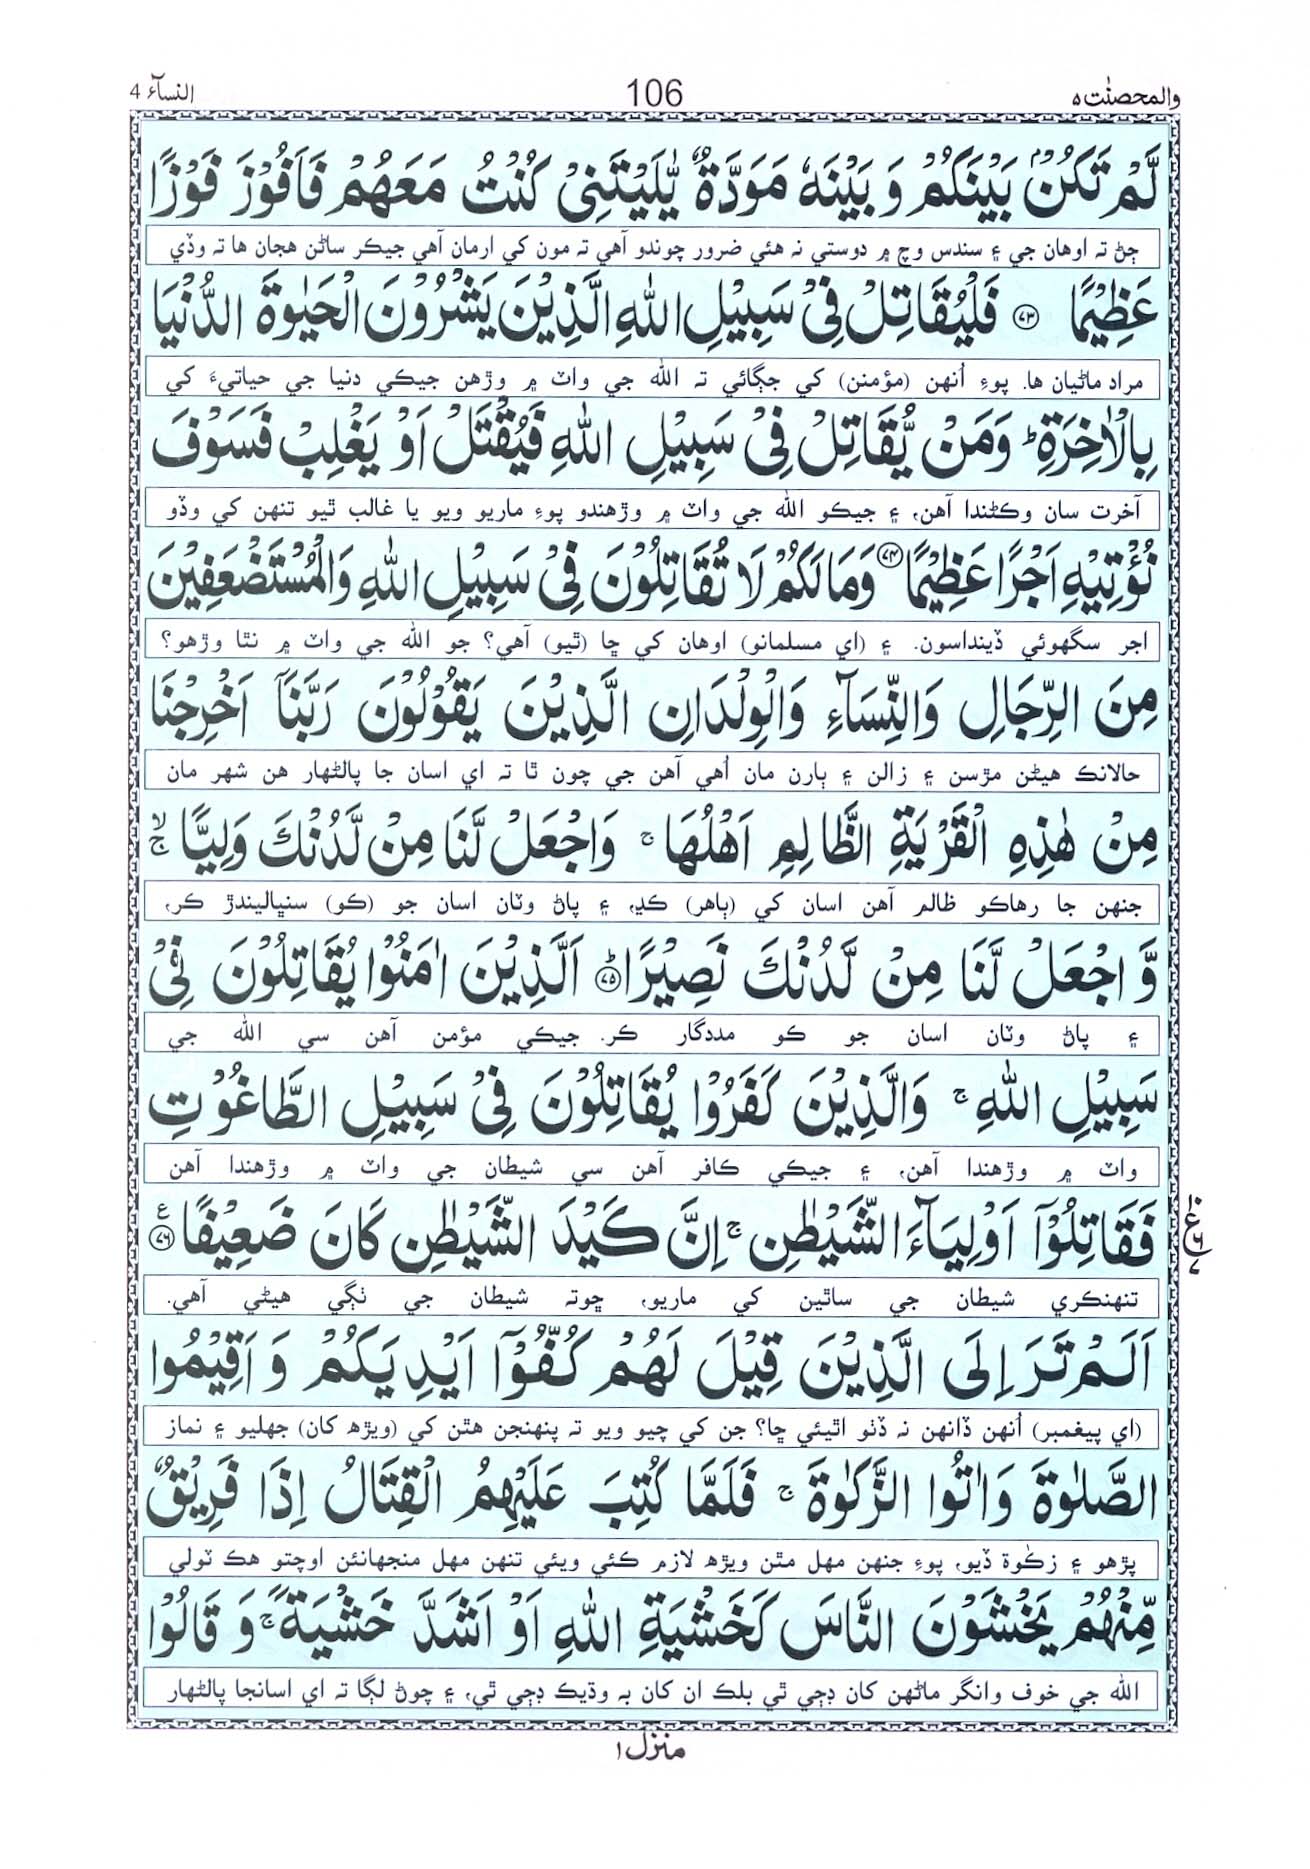 والمحصنٰت ٥
106
النسآء 4
لَّمْ تَكُنْۢ بَيْنَكُمْ وَ بَيْنَهٗ مَوَدَّةٌ يّٰلَيْتَنِیْ كُنْتُ مَعَهُمْ فَاَفُوْزَ فَوْزًا
ڄڻ تہ اوهان جي ۽ سندس وچ ۾ دوستي نہ هئي ضرور چوندو آهي تہ مون کي ارمان آهي جيڪر ساڻن هجان ها تہ وڏي
عَظِيْمًا ﴿۷۳﴾ فَلْيُقَاتِلْ فِیْ سَبِيْلِ اللّٰهِ الَّذِيْنَ يَشْرُوْنَ الْحَيٰوةَ الدُّنْيَا
مراد ماڻيان ها. پوءِ اُنهن (مؤمنن) کي جڳائي تہ الله جي واٽ ۾ وڙهن جيڪي دنيا جي حياتيءَ کي
بِالْاٰخِرَةِ ؕ وَمَنْ يُّقَاتِلْ فِیْ سَبِيْلِ اللّٰهِ فَيُقْتَلْ اَوْ يَغْلِبْ فَسَوْفَ
آخرت سان وڪڻندا آهن، ۽ جيڪو الله جي واٽ ۾ وڙهندو پوءِ ماريو ويو يا غالب ٿيو تنهن کي وڏو
نُؤْتِيْهِ اَجْرًا عَظِيْمًا ﴿۷۴﴾ وَمَا لَكُمْ لَا تُقَاتِلُوْنَ فِیْ سَبِيْلِ اللّٰهِ وَالْمُسْتَضْعَفِيْنَ
اجر سگهوئي ڏينداسون. ۽ (اي مسلمانو) اوهان کي ڇا (ٿيو) آهي؟ جو الله جي واٽ ۾ نٿا وڙهو؟
مِنَ الرِّجَالِ وَالنِّسَآءِ وَالْوِلْدَانِ الَّذِيْنَ يَقُوْلُوْنَ رَبَّنَاۤ اَخْرِجْنَا
حالانڪ هيڻن مڙسن ۽ زالن ۽ ٻارن مان اُهي آهن جي چون ٿا تہ اي اسان جا پالڻهار هن شهر مان
مِنْ هٰذِهِ الْقَرْيَةِ الظَّالِمِ اَهْلُهَا ۚ وَاجْعَلْ لَّنَا مِنْ لَّدُنْكَ وَلِيًّا ۙۚ
جنهن جا رهاڪو ظالم آهن اسان کي (ٻاهر) ڪڍ، ۽ پاڻ وٽان اسان جو (ڪو) سنڀاليندڙ ڪر،
وَّ اجْعَلْ لَّنَا مِنْ لَّدُنْكَ نَصِيْرًا ﴿۷۵﴾ؕ اَلَّذِيْنَ اٰمَنُوْا يُقَاتِلُوْنَ فِیْ
۽ پاڻ وٽان اسان جو ڪو مددگار ڪر. جيڪي مؤمن آهن سي الله جي
سَبِيْلِ اللّٰهِ ۚ وَالَّذِيْنَ كَفَرُوْا يُقَاتِلُوْنَ فِیْ سَبِيْلِ الطَّاغُوْتِ
واٽ ۾ وڙهندا آهن، ۽ جيڪي ڪافر آهن سي شيطان جي واٽ ۾ وڙهندا آهن
فَقَاتِلُوْۤا اَوْلِيَآءَ الشَّيْطٰنِ ۚ اِنَّ كَيْدَ الشَّيْطٰنِ كَانَ ضَعِيْفًا ﴿۷۶﴾ع
۱۰ ع ٦ ۷
تنهنڪري شيطان جي ساٿين کي ماريو، ڇوتہ شيطان جي ٺڳي هيڻي آهي.
اَلَمْ تَرَ اِلَی الَّذِيْنَ قِيْلَ لَهُمْ كُفُّوْۤا اَيْدِيَكُمْ وَ اَقِيْمُوا
(اي پيغمبر) اُنهن ڏانهن نہ ڏٺو اٿيئي ڇا؟ جن کي چيو ويو تہ پنهنجن هٿن کي (ويڙھ کان) جهليو ۽ نماز
الصَّلٰوةَ وَاٰتُوا الزَّكٰوةَ ۚ فَلَمَّا كُتِبَ عَلَيْهِمُ الْقِتَالُ اِذَا فَرِيْقٌ
پڙهو ۽ زڪٰوة ڏيو، پوءِ جنهن مهل مٿن ويڙھ لازم ڪئي ويئي تنهن مهل منجهانئن اوچتو هڪ ٽولي
مِّنْهُمْ يَخْشَوْنَ النَّاسَ كَخَشْيَةِ اللّٰهِ اَوْ اَشَدَّ خَشْيَةً ۚ وَ قَالُوْا
الله جي خوف وانگر ماڻهن کان ڊڄي ٿي بلڪ ان کان بہ وڌيڪ ڊڄي ٿي، ۽ چوڻ لڳا تہ اي اسانجا پالڻهار
منزل ۱